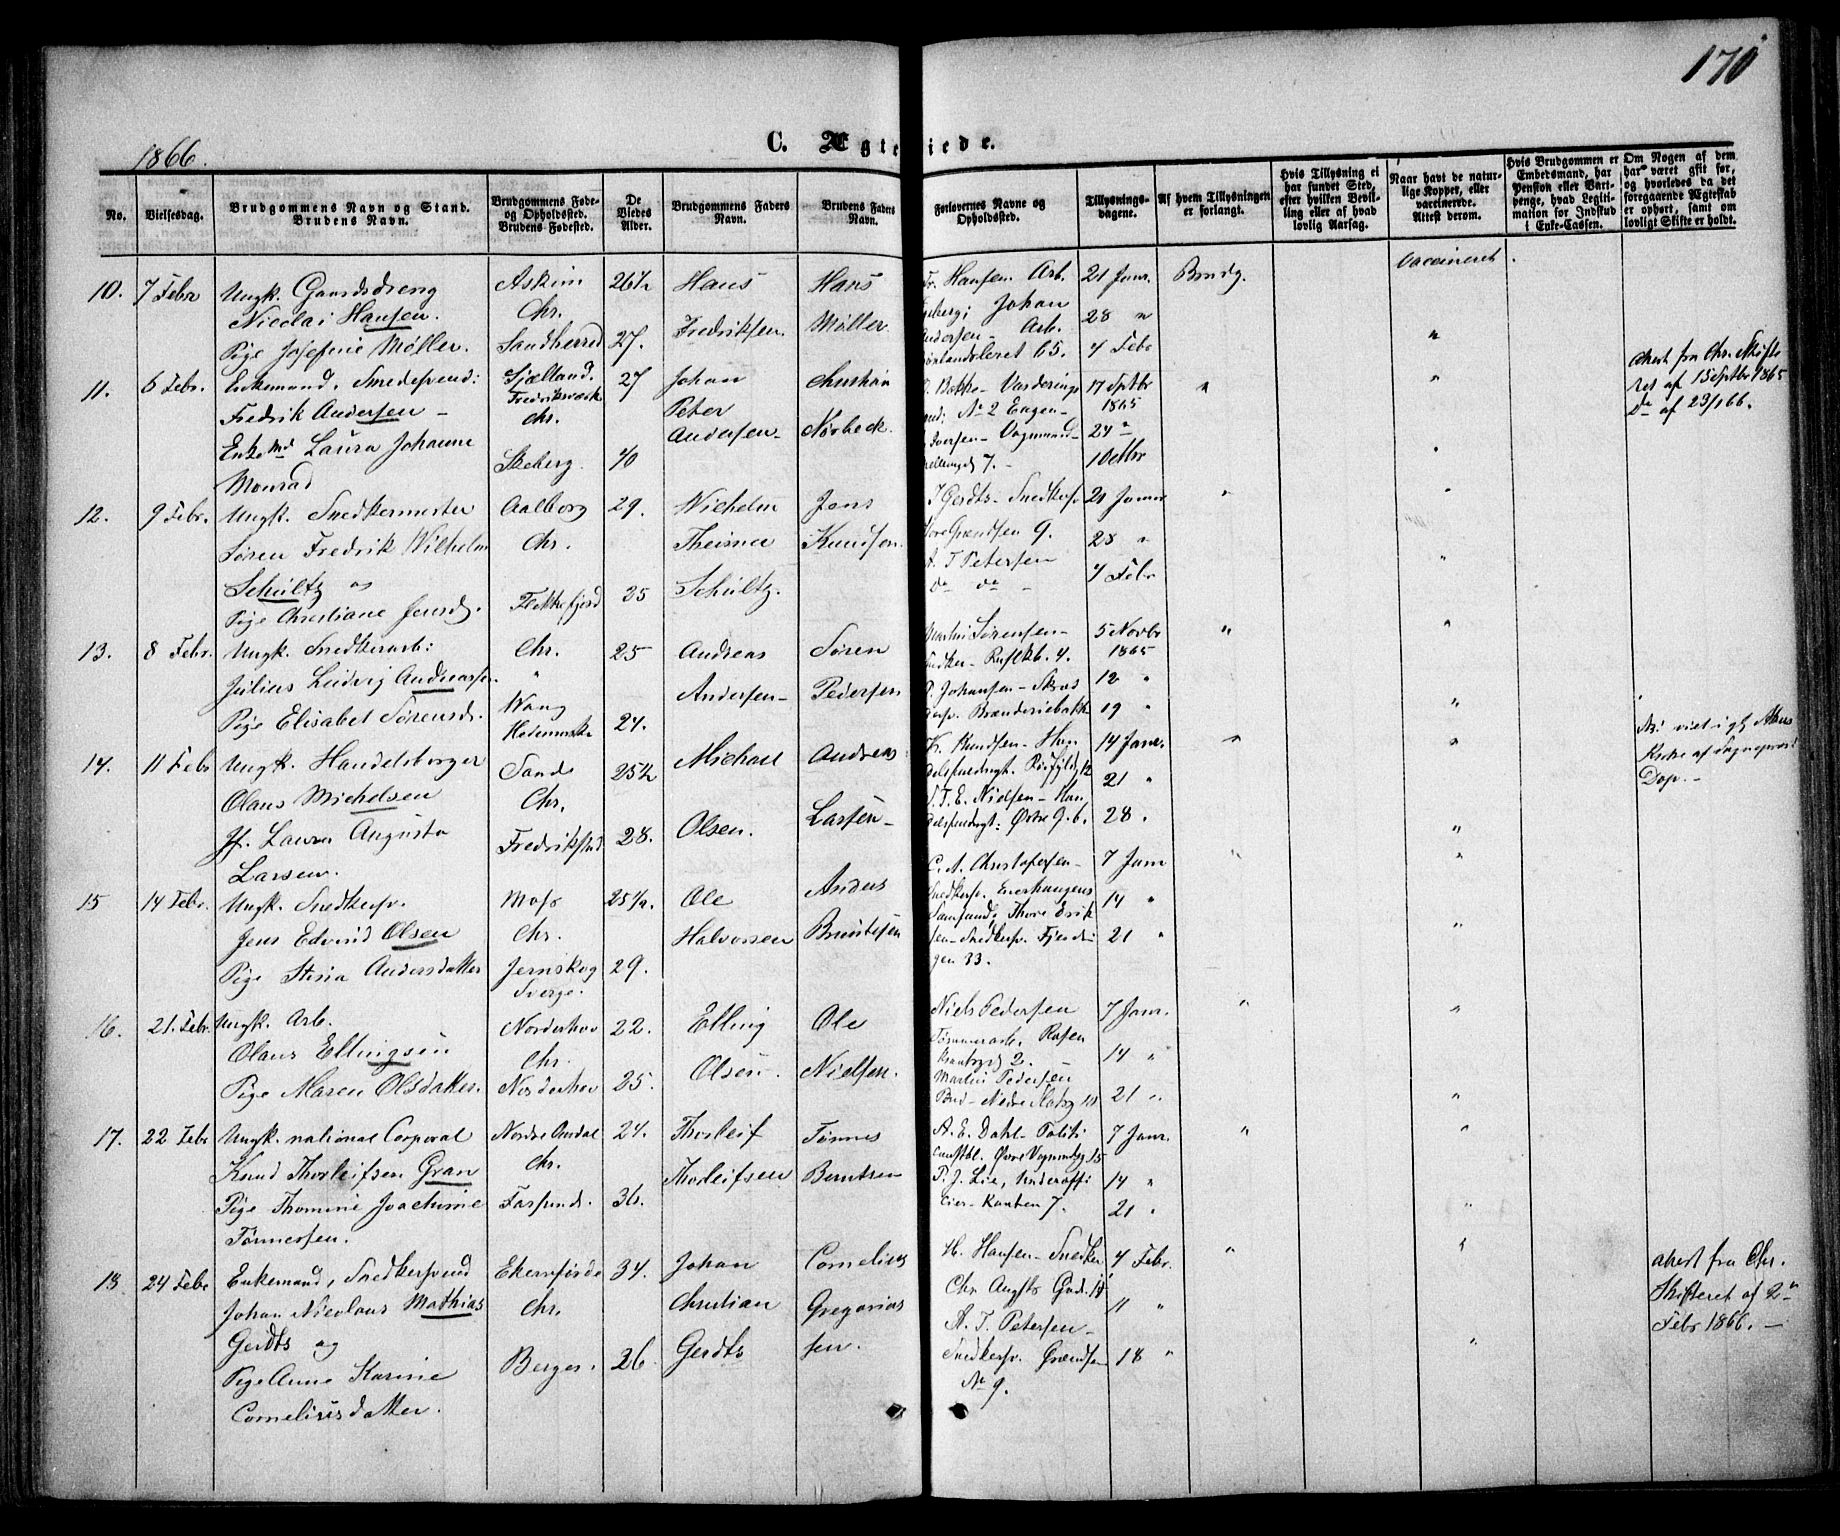 170
1866.
C. Ægteviede.
No.
Vielsesdag.
Brudgommens Navn og Stand.
Brudens Navn.
Brudgommens Føde-
og Opholdssted.
Brudens Fødested.
De
Viedes
Alder.
Brudgommens Faders
Navn.
Brudens Faders
Navn.
Forlovernes Navne og
Opholdssted.
Tillysnings-
dagene.
Af hvem Tillysningen
er forlangt.
Hvis Tillysning ei
har fundet Sted,
efter hvilken Bevil-
ling eller af hvad
lovlig Aarsag.
Naar havt de natur-
lige Kopper, eller
vaccinerede.
Attest derom.
Hvis Brudgommen er
Embedsmand, har
Pension eller Vart-
penge, hvad Legiti-
mation for Indskud
i Enke-Cassen.
Om Nogen af dem
har været gift før,
og hvorledes da det
foregaaende Ægteskab
er ophørt, samt om
lovligt Skifte er holdt.
10. 7 Febr Ungk. Gaardsdreng Askim 26½ Hans Hans Fr. Hansen Arb. 21 Janr. Brudg. vaccineret.
Nicolai Hansen. Chr. Fredriksen. Møller Johan 28 "
Pige Josefine Møller. Sandherred 27. Andersen Arb.
Grønlandsleret 65. 4 Febr "
11. 6 Febr. Enkemand, Smedesvend: Sjælland. 27 Johan Christian Vardering 17 Septbr " "
Fredrik Andersen Fredriksværk Peter Nørbeck No 2 Engen 1865
Chr. Andersen Iversen Vognmand 24 "
Enkemd Laura Johanne Skeberg 40 7. 1 Octbr "
Monrad
attest fra Chr. Skifte
ret af 15 Septbr 1865
Do af 23/1 66.
12. 9 Febr. Ungk. Snedkermester Aalborg 29. Wichelm Jens J Gerdts Snedkersv 21 Janr " "
Søren Fredrik Wilhelm Chr. Knudsen Grændsen 9. 28 "
Schultz og Schultz. A. T Petersen 4 Febr "
Pige Christiane Jensd. Flekkefjord 25 do do
13. 8 Febr. Ungk. Snedkerarb: Chr. 25 Andreas Søren Martin Sørensen 5 Novbr " "
Julius Ludvig Andreassen " Andersen Pedersen 4. 1865
Pige Elisabet Sørensd. Wang P. Johansen Skræd 12 "
Hedemark 24. Brænderiebakk 19 " "
14. 11 Febr Ungk. Handelsborger Sande 25½ Michael Andreas Kr. Knudsen Han 14 Janr. " "
Olaus Michelsen Chr. Olsen. Larsen delsfuldmægt. 12 21 "
Jf. Laura Augusta Fredrikstad 28. J. F. E. Nielsen Han 28 "
Larsen. delsfuldmægt: Østre G. 6. "
viet i gl. Akers
Kirke af Sogneprest
Dop.
15 14 Febr. Ungk. Snedkersv. Moss 25½. Ole Anders C. A. Christofersen 7 Janr " "
Jens Edvard Olsen Chr. Halvorsen Snedkersv. Enerhaugens 14 "
Pige Stina Andersdatter Jernskog 29. Samfund, Thore Erik
Sverge. sen Snedkersv. Fjerdin 21 " "
gen 33.
16. 21. Febr. Ungk. Arb. Norderhov 22. Elling Ole Niels Pedersen 7 Janr. " "
Olaus Ellingsen Chr. Olsen. Nielsen. Tømmerarb. Rosen
Pige Maren Olsdatter. Norderhov 25. 2. 14 "
Martin Pedersen
Bud Nedre 21 " "
17. 22 Febr Ungk. national Corporal Nordre Aurdal 24. Thorleif Tønnes A. E. Dahl Politi 7 Janr. " "
Knud Thorleifsen Gran Chr. Thorleifsen Berntsen constbl. Øvre Vognmdsg 15
Pige Thomine Joachime Farsund. 36. P. J. Lie, Underoffi 14 "
Tønnessen. cier Kanten 7. 21 " "
18 24 Febr Enkemand, Snedkersvend Ekernførde 34. Johan Cornelius H. Hansen Snedker 4 Febr. " "
Johan Nicolaus Mathias Chr. Christian Gregorius Chr Augsts Gad. 14
Gerdts og Gerdts sen. A. T. Petersen 11 "
Pige Anne Karine Bergen. 26. Snedkersv. Grændsen 18 " "
Corneliusdatter. No 9.
attest fra Chr.
Skifteret af 2n
Febr 1866.